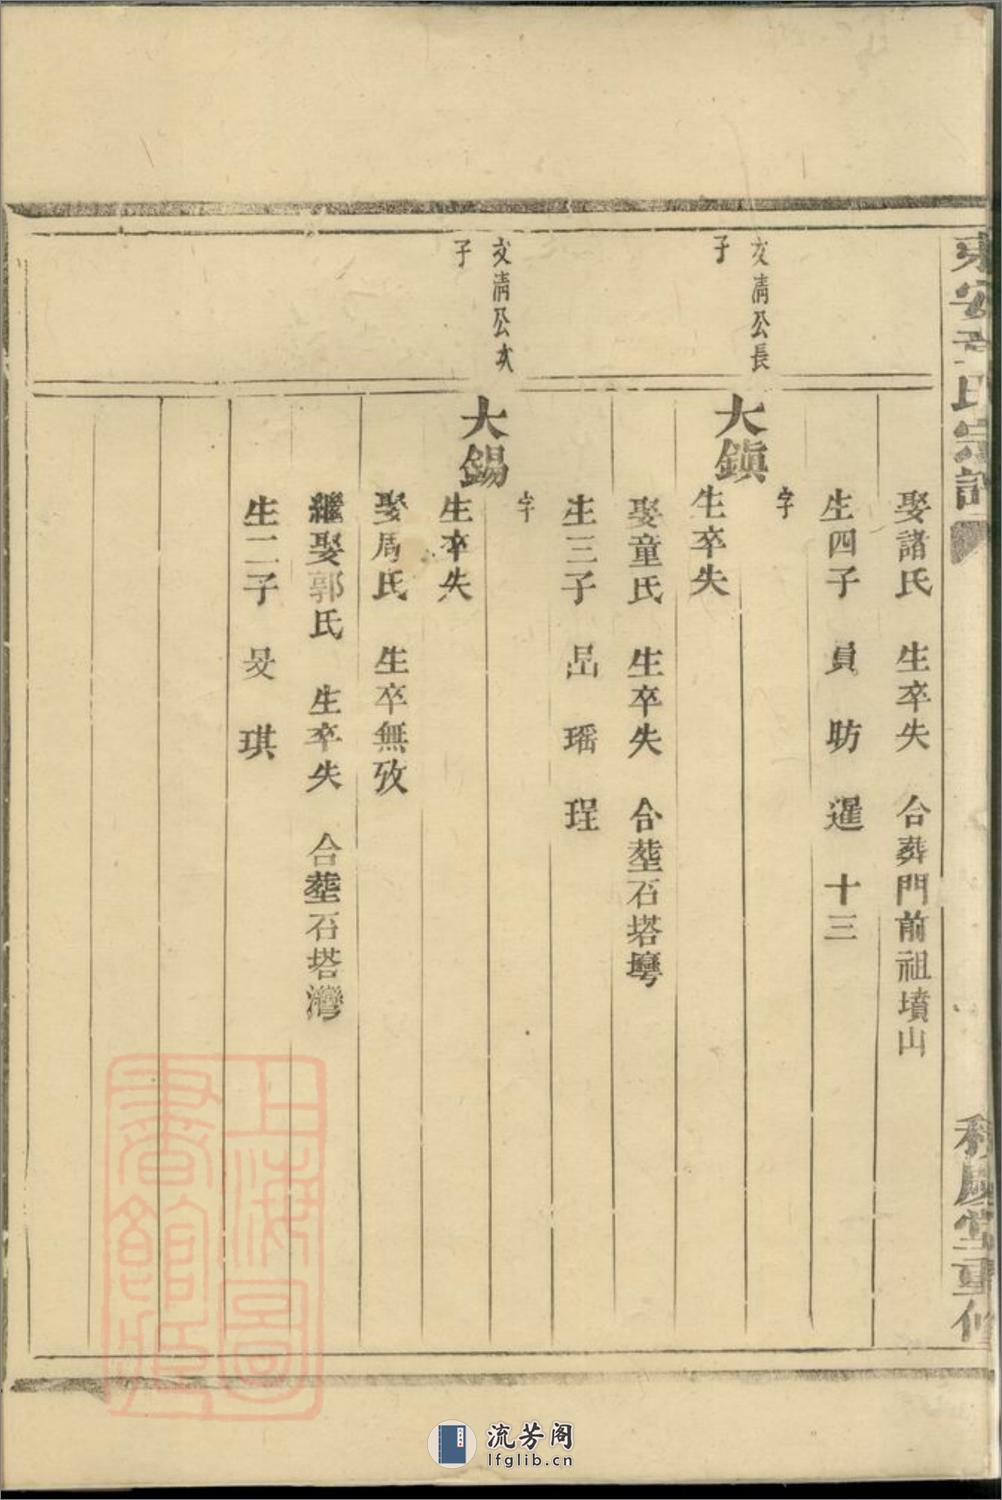 東安王氏宗譜
娶諸氏 生卒失 合葬門前祖墳山
生四子 員 昉 暹 十三
字
文清公長
子
大鎮
生卒失
娶童氏 生卒失 合塟石塔壪
生三子 昂 瑤 珵
字
文清公次
子
大錫
生卒失
娶周氏 生卒無攷
繼娶郭氏 生卒失 合塟石塔灣
生二子 旻 琪
堂重修
上海圖書館藏
流芳阁
lfglib.cn